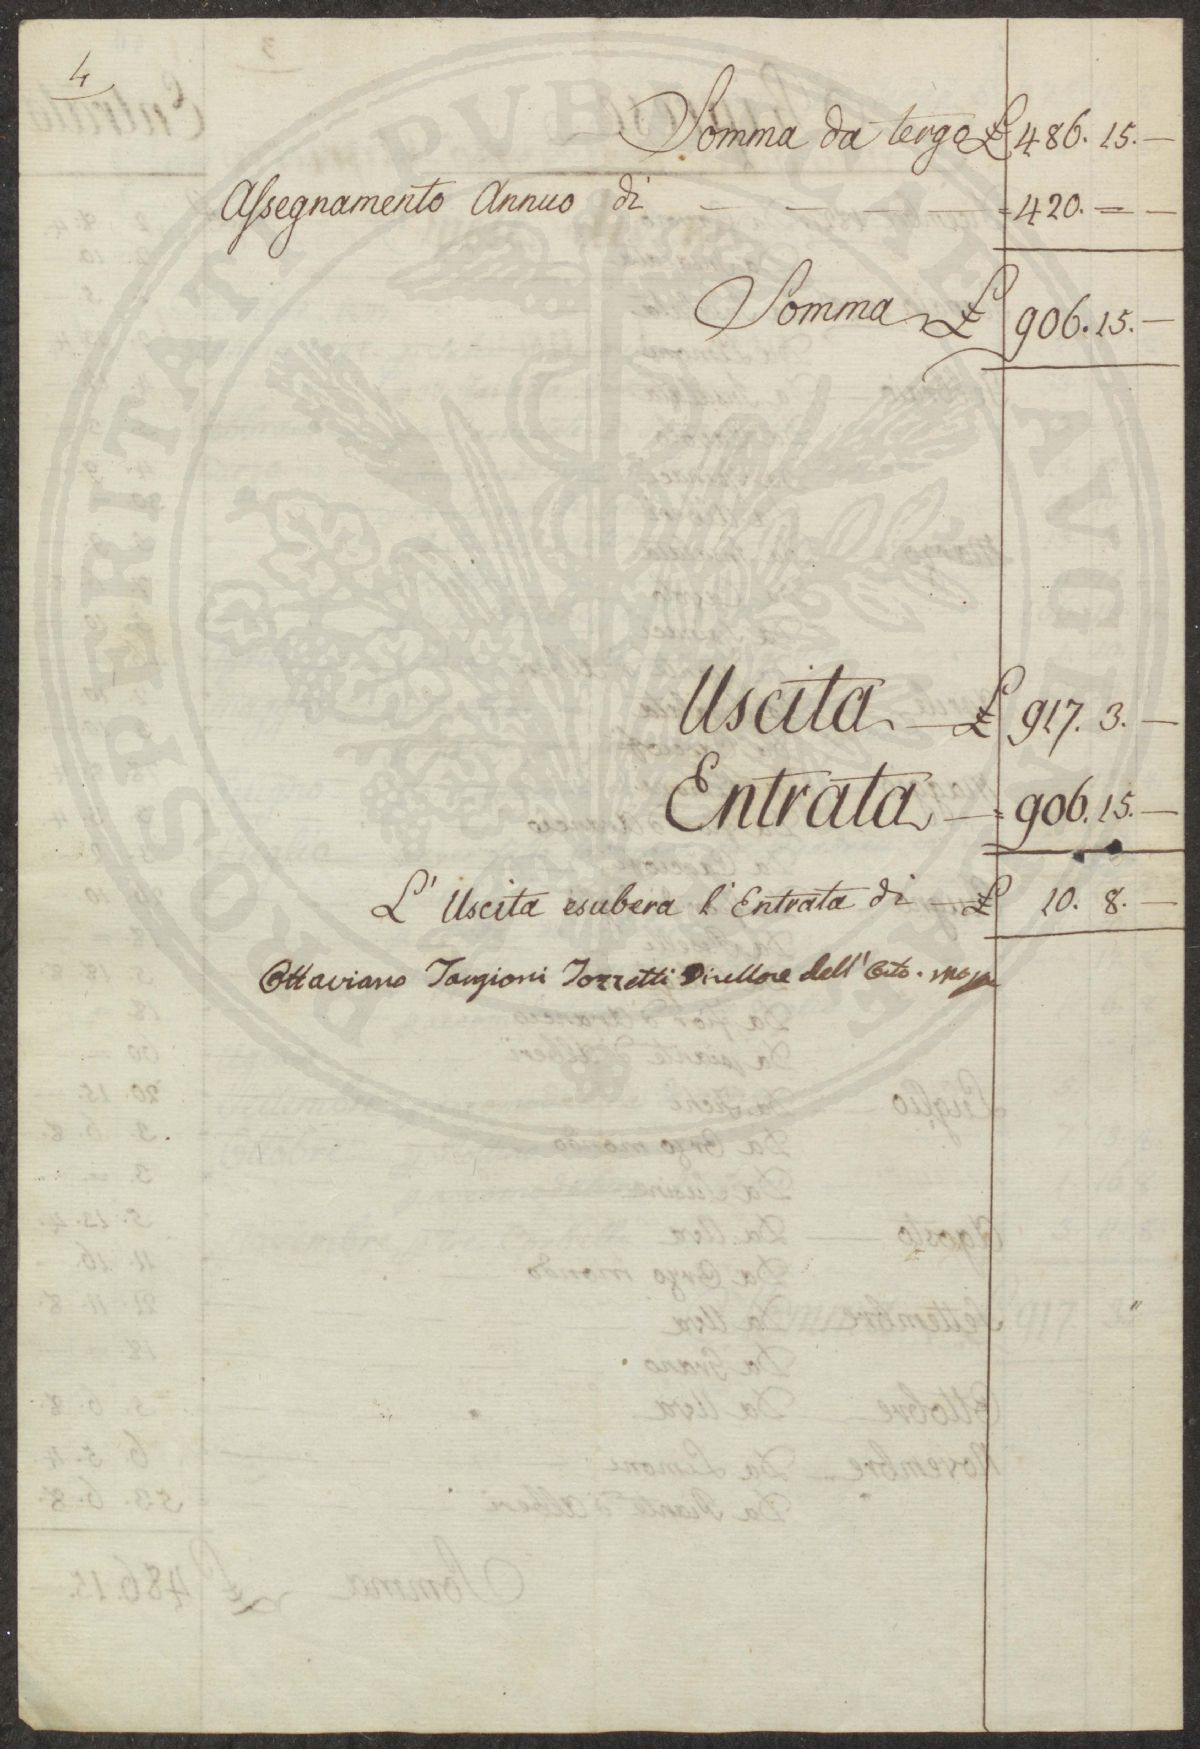 4
Somma da tergo £ 486. 15. —
Assegnamento Annuo di — — — — = 420. = —
Somma £ 906. 15. —
Uscita — £ 917. 3. —
Entrata — = 906. 15. —
L' Uscita esubera l' Entrata di — £ 10. 8. —
Ottaviano Targioni Tozzetti Direttore dell'
PROSPERITATI PVBLICAE AVGENDAE